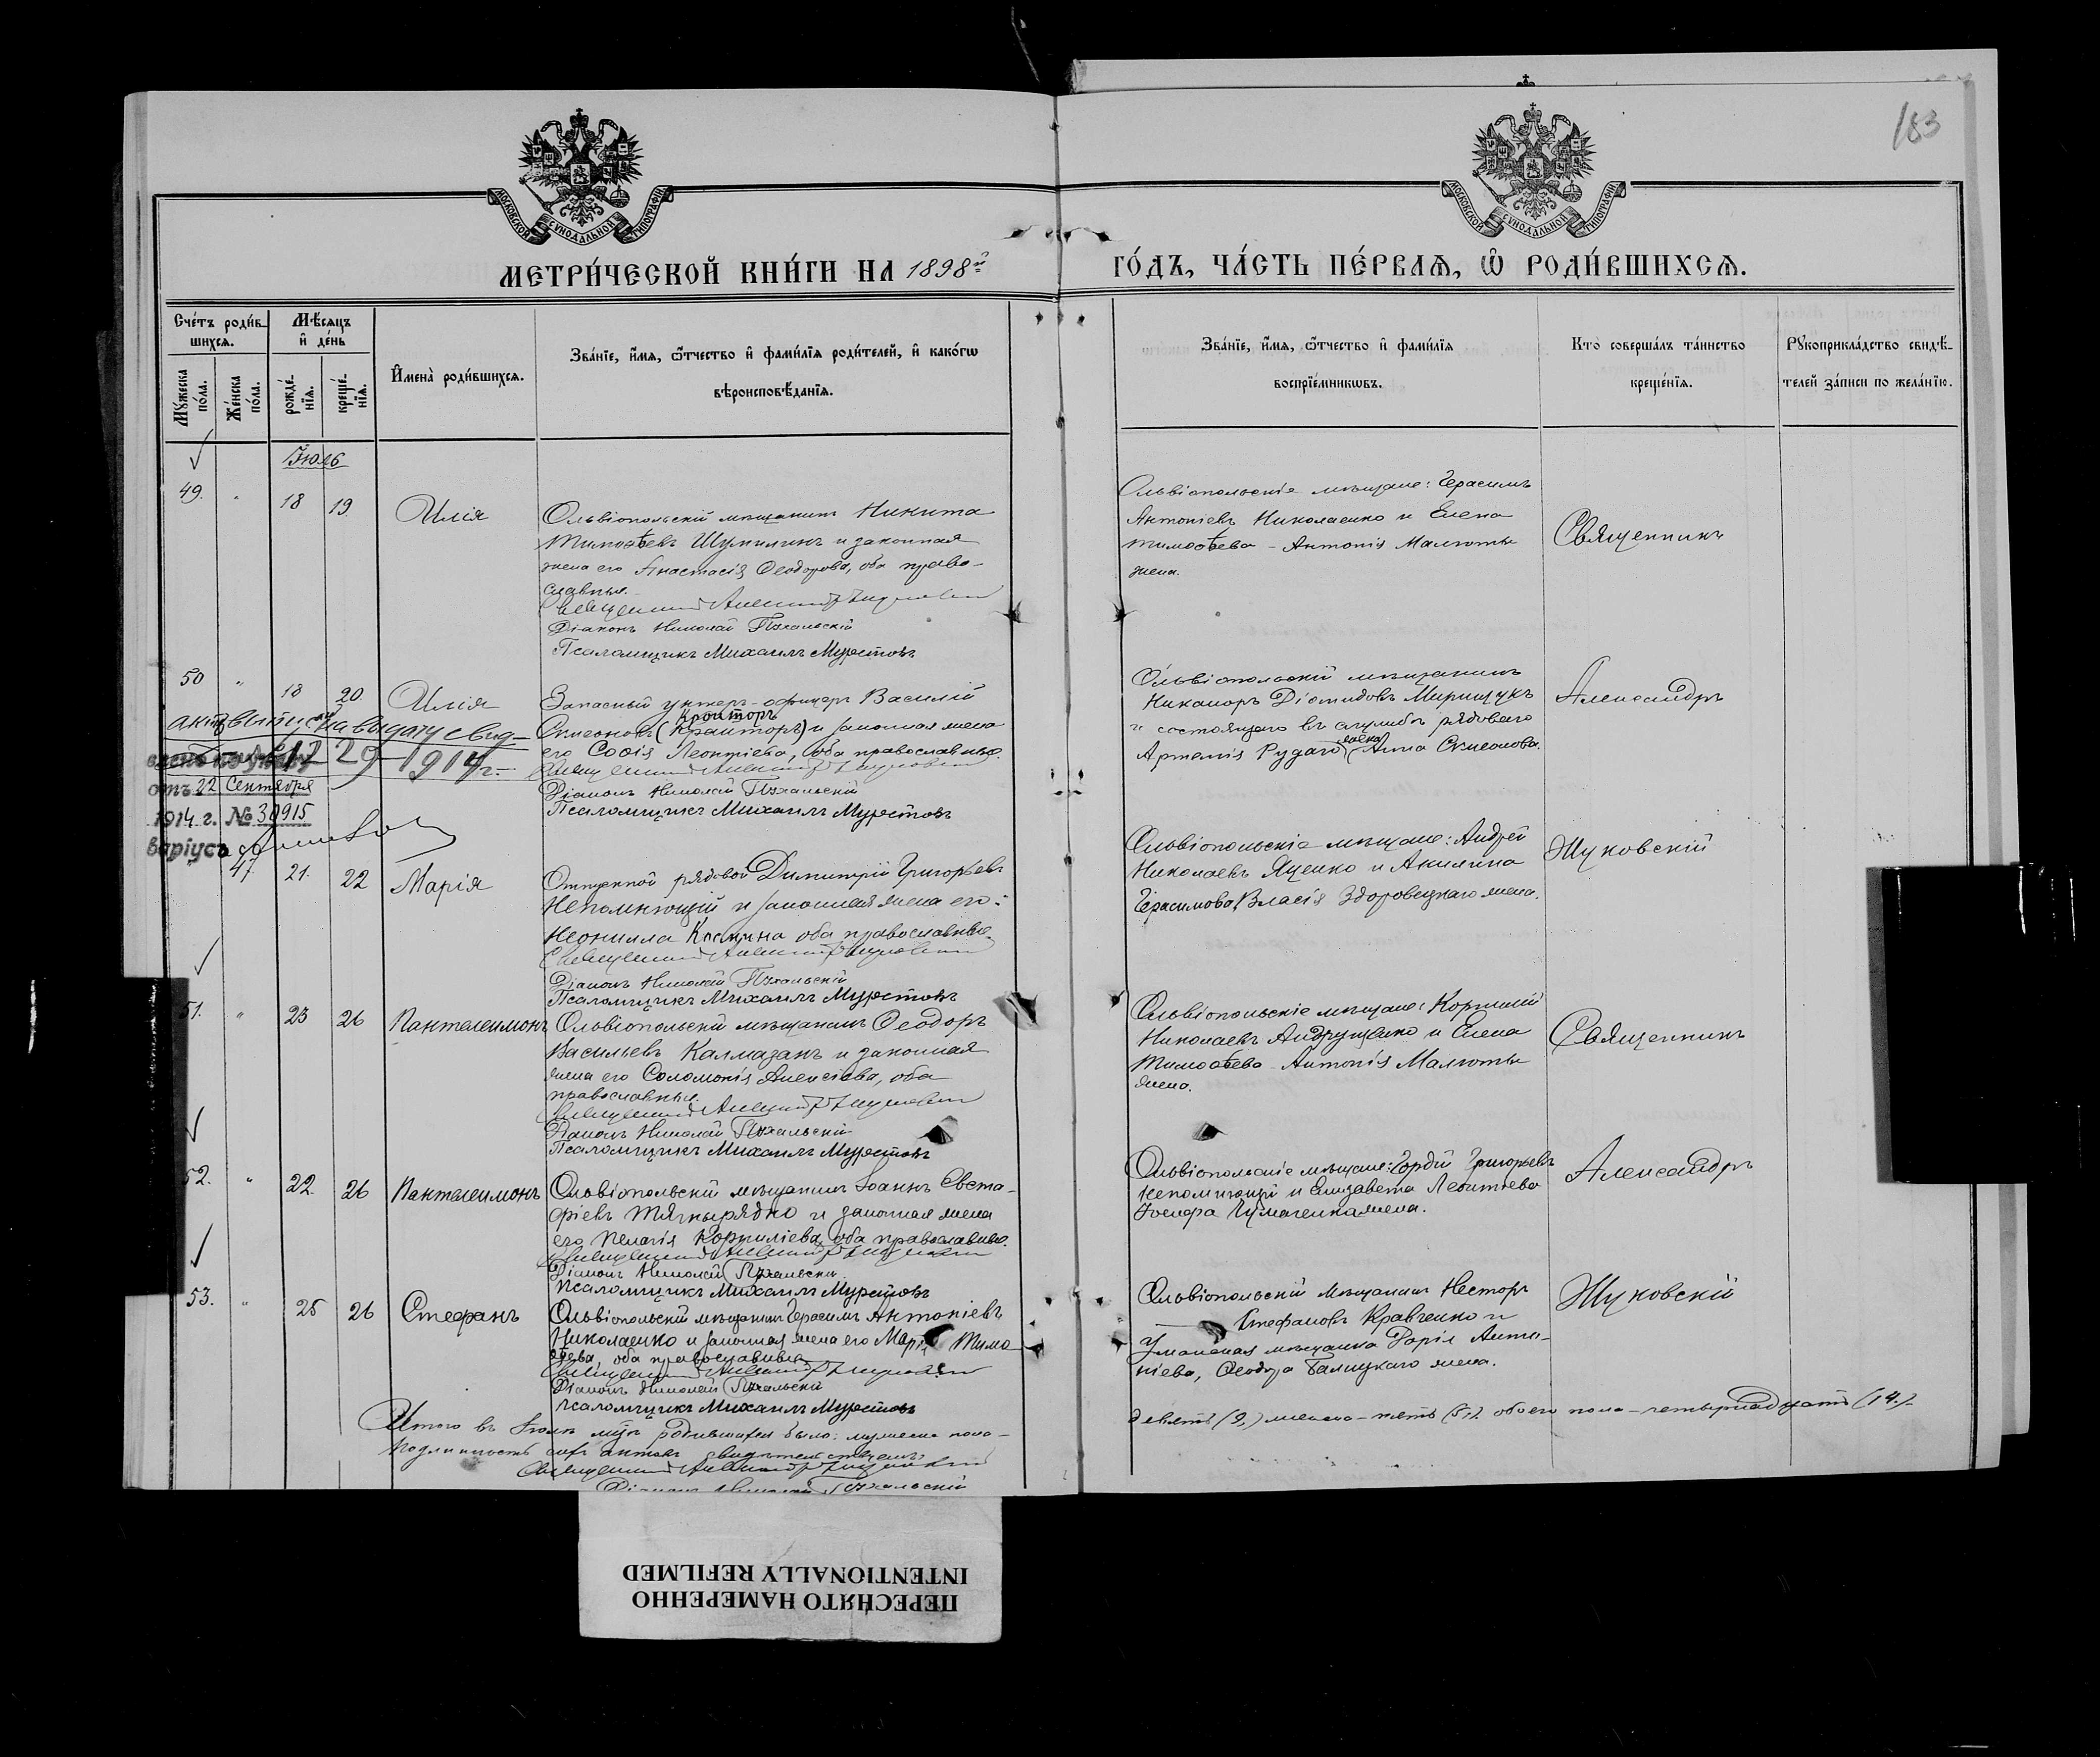 183
МОСКОВСКОЙ СУНОДАЛЬНОЙ ТИПОГРАФІИ
МОСКОВСКОЙ СУНОДАЛЬНОЙ ТИПОГРАФІИ
МЕТРИ́ЧЕСКОЙ КНИ́ГИ НА 1898й
ГО́ДЪ, ЧА́СТЬ ПЕ́РВАѦ, Ѽ РОДИ́ВШИХСѦ.
Сче́тъ роди́в-
шихсѧ.
Мѣ́сѧцъ
и҆ де́нь
Мꙋ́жеска по́ла.
Же́нска по́ла.
рожде́-нїѧ.
креще́-нїѧ.
И҆мена̀ роди́вшихсѧ.
Зва́нїе, и҆́мѧ, ѻ҆́тчество и҆ фами́лїѧ роди́телей, и҆ како́гѡ
вѣроисповѣ́данїѧ.
Зва́нїе, и҆́мѧ, ѻ҆́тчество и҆ фами́лїѧ
воспрїе́мникѡвъ.
Кто̀ соверша́лъ та́инство
креще́нїѧ.
Рꙋкоприкла́дство свидѣ́-
телей за́писи по жела́нїю.
Іюль
49. " 18 19 Илія
Ольвіопольскій мѣщанинъ Никита
Тимоѳеевъ Шумилинъ и законная
жена его Анастасія Ѳеодорова, оба право-
славные.
Священникъ Александръ Жуковскій
Діаконъ Николай Пухальскій
Псаломщикъ Михаилъ Муретовъ
Ольвіопольскіе мѣщане: Герасимъ
Антоніевъ Николаенко и Елена
Тимоѳеева – Антонія Малюты
жена.
Священникъ
50 " 18 20 Илія
Запасный унтеръ-офицеръ Василій
Кройторъ
(Крайторъ) и законная жена
его Софія Леонтіева, оба православные.
Священникъ Александръ Жуковскій
Діаконъ Николай Пухальскій
Псаломщикъ Михаилъ Муретовъ
на выдачу свид-
1914 г.
отъ 22 Сентября
1914 г. № 30915
Ольвіопольскій мѣщанинъ
Никаноръ Діомидовъ Мирищукъ
и состоящаго въ службѣ рядового
Артемія Рудаго жена Анна
Александръ
" 47. 21. 22 Марія
Отпускной рядовой Димитрій Григорьевъ
Непомнющій и законная жена его:
Неонилла оба православные.
Священникъ Александръ Жуковскій
Діаконъ Николай Пухальскій
Псаломщикъ Михаилъ Муретовъ
Ольвіопольскіе мѣщане: Андрей
Николаевъ Яценко и Акилина
Герасимова, Власія Здоровецкаго жена.
Жуковскій
51. " 23 26 Пантелеимонъ
Ольвіопольскій мѣщанинъ Ѳеодоръ
Васильевъ Калмазанъ и законная
жена его Соломонія Алексіева, оба
православные.
Священникъ Александръ Жуковскій
Діаконъ Николай Пухальскій
Псаломщикъ Михаилъ Муретовъ
Ольвіопольскіе мѣщане: Корнилій
Николаевъ Андрущенко и Елена
Тимоѳеева Антонія Малюты
жена.
Священникъ
52. " 22. 26 Пантелеимонъ
Ольвіопольскій мѣщанинъ Іоаннъ Евста-
фіевъ Тягнырядно и законная жена
его Пелагія Корниліева, оба православные.
Священникъ Александръ Жуковскій
Діаконъ Николай Пухальскій
Псаломщикъ Михаилъ Муретовъ
Ольвіопольскіе мѣщане: Гордій Григорьевъ
Непомнющій и Елизавета Леонтіева
Іосифа Чумаченка жена.
Александръ
53. " 25 26 Стефанъ
Ольвіопольскій мѣщанинъ Герасимъ Антоніевъ
Николаенко и законная жена его Марія Тимо-
ѳеева, оба православные
Священникъ Александръ Жуковскій
Діаконъ Николай Пухальскій
Псаломщикъ Михаилъ Муретовъ
Ольвіопольскій мѣщанинъ Несторъ
Стефановъ Кравченко и
Уманская мѣщанка Дарія Анто-
ніева, Ѳеодора Балицкаго жена.
Жуковскій
Итого въ Іюлѣ родившихся было: мужеска пола –
девять (9,) женска – пять (5,) обоего пола – четырнадцать (14.)
Подлинность сихъ актовъ свидѣтельствуемъ:
Священникъ Александръ Жуковскій
Діаконъ Николай Пухальскій
ПЕРЕСНЯТО НАМЕРЕННО
INTENTIONALLY REFILMED